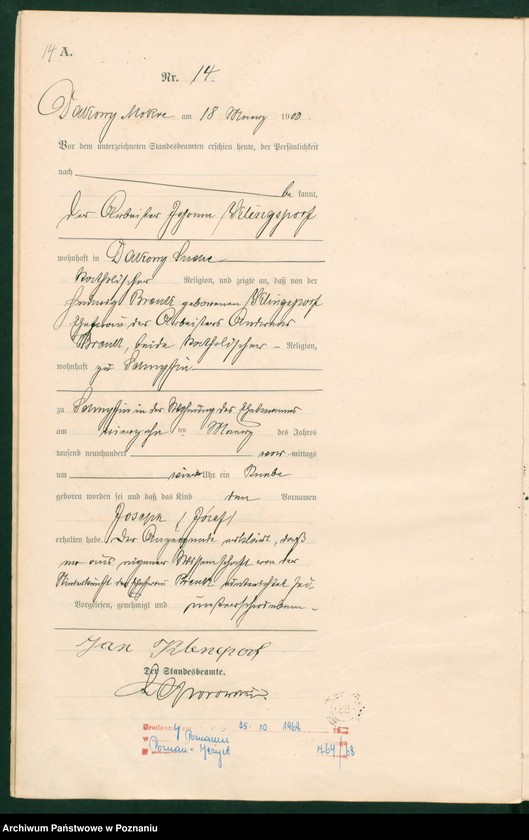 14. A.
Nr. 14.
Dakowy Mokre am 18 Maerz 1900.
Vor dem unterzeichneten Standesbeamten erschien heute, der Persönlichkeit
nach
be kannt,
der Arbeiter Johann Klingsporf
wohnhaft in Dakowy Suche
katholischer Religion, und zeigte an, daß von der
Hedwig Brenk geborenen Klingsporf
Ehefrau des Arbeiters Andreas
Brenk, beide katholischer Religion,
wohnhaft zu
zu in der Wohnung des Ehemannes
am vierzehn ten Maerz des Jahres
tausend neunhundert vor mittags
um vier Uhr ein Knabe
geboren worden sei und daß das Kind den Vornamen
Joseph (Józef)
erhalten habe. Der Anzeigende erklärt, daß
er aus eigener Wissenschaft von der
Niederkunft der Brenk unterrichtet sei.
Vorgelesen, genehmigt und unterschrieben
Jan
Der Standesbeamte.
25. 10 1968
Poznań
Poznań - Jeżyce 764/68
Archiwum Państwowe w Poznaniu